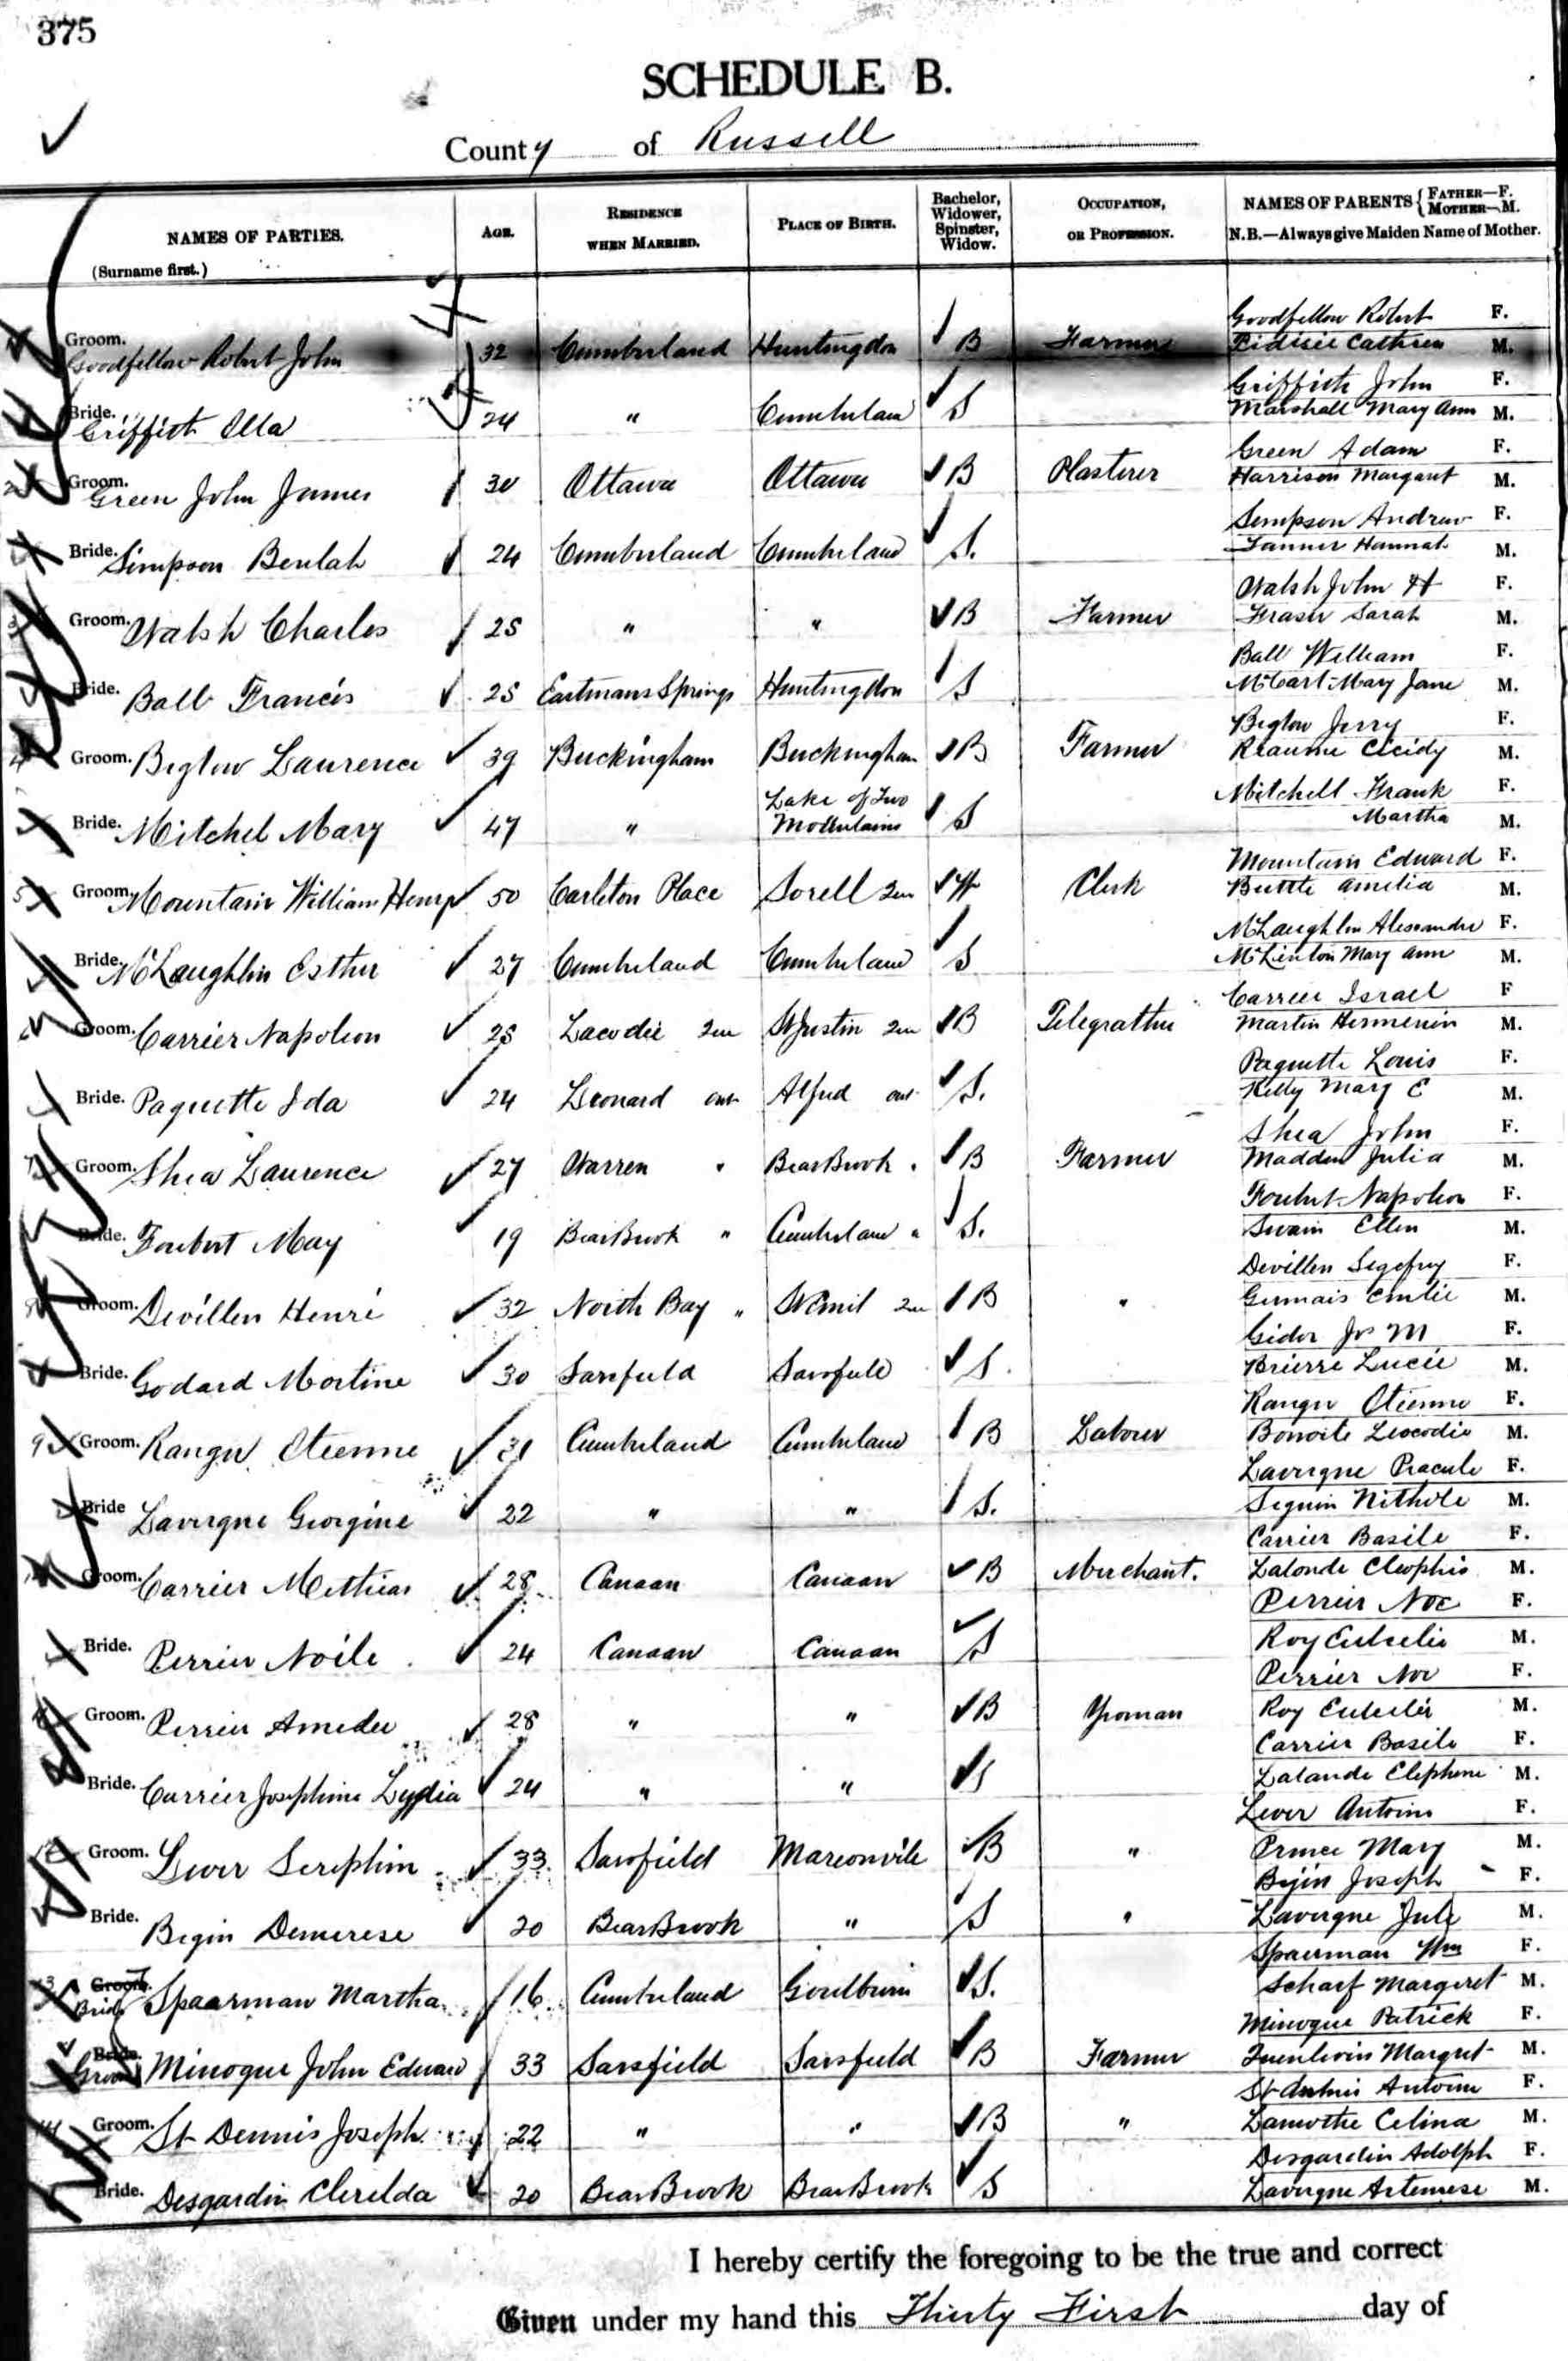 375
SCHEDULE B.
County of Russell
NAMES OF PARTIES.
(Surname first.)
AGE.
RESIDENCE
WHEN MARRIED.
PLACE OF BIRTH.
Bachelor,
Widower,
Spinster,
Widow.
OCCUPATION,
OR PROFESSION.
NAMES OF PARENTS { FATHER—F.
MOTHER—M.
N.B.—Always give Maiden Name of Mother.
Groom. Goodfellow Robert John 32 Cumberland Huntingdon B Farmer
Goodfellow Robert F.
Cathren M.
Bride. Griffith Ella 24 " Cumberland S
Griffith John F.
Marshall Mary Ann M.
2 Groom. Green John James 30 Ottawa Ottawa B Plasterer
Green Adam F.
Harrison Margaret M.
Bride. Simpson Beulah 24 Cumberland Cumberland S.
Simpson Andrew F.
Tanner Hannah M.
3 Groom. Walsh Charles 25 " " B Farmer
Walsh John H F.
Fraser Sarah M.
Bride. Ball Francis 25 Eastmans Springs Huntingdon S
Ball William F.
McCart Mary Jane M.
4 Groom. Beglow Laurence 39 Buckingham Buckingham B Farmer
Beglow Jerry F.
Reaume M.
Bride. Mitchel Mary 47 " Lake of Two Mountains S
Mitchell Frank F.
Martha M.
5 Groom. Mountain William Henry 50 Carleton Place Sorell Que W Clerk
Mountain Edward F.
Buttle Amelia M.
Bride. McLaughlin Esther 27 Cumberland Cumberland S
McLaughlin Alexander F.
McLinton Mary Ann M.
6 Groom. Carrier Napoleon 25 Lacodie Que St Justin Que B Telegrather
Carrier Israel F
Martin M.
Bride. Paquette Ida 24 Leonard ont Alfred ont S.
Paquette Louis F.
Kelly Mary E M.
7 Groom. Shea Laurence 27 Warren " Bear Brook " B Farmer
Shea John F.
Madden Julia M.
Bride. Foubert May 19 Bear Brook " Cumberland " S.
Foubert Napoleon F.
Swain Ellen M.
8 Groom. Devillen Henri 32 North Bay " St Emil Que B "
Devillen F.
Germais Emilie M.
Bride. Godard Mortine 30 Sarsfield Sarsfield S
Jos M F.
Brierre Lucie M.
9 Groom. Ranger Etienne 31 Cumberland Cumberland B Laborer
Ranger Etienne F.
Leocodie M.
Bride Lavergne Georgine 22 " " S.
Lavergne F.
Seguin M.
10 Groom. Carrier Mathias 28 Canaan Canaan B Merchant.
Carrier Basile F.
Lalonde Cleophis M.
Bride. Perrier Noile 24 Canaan Canaan S
Perrier Noe F.
Roy M.
11 Groom. Perrier Amedee 28 " " B Yoman
Perrier Noe F.
Roy M.
Bride. Carrier Josephine Lydia 24 " " S
Carrier Basile F.
Lalande M.
12 Groom. Lever Seriphin 33 Sarsfield Marionvile B "
Lever Antoine F.
Prince Mary M.
Bride. Begin Demerese 20 Bear Brook " S "
Bejin Joseph F.
Lavergne Jule M.
13 Groom. Bride Spaarman Martha 16 Cumberland Goulburn S.
Spaarman Wm F.
Scharf Margeret M.
Bride. Groom Minogue John Edward 33 Sarsfield Sarsfield B Farmer
Minogue Patrick F.
Margret M.
14 Groom. St Dennis Joseph 22 " " B "
St Antoine F.
Lamothe Celina M.
Bride. Desgardin Clerilda 20 Bear Brook Bear Brook S
Desgardin Adolph F.
Lavergne Artemese M.
I hereby certify the foregoing to be the true and correct
Given under my hand this Thirty First day of